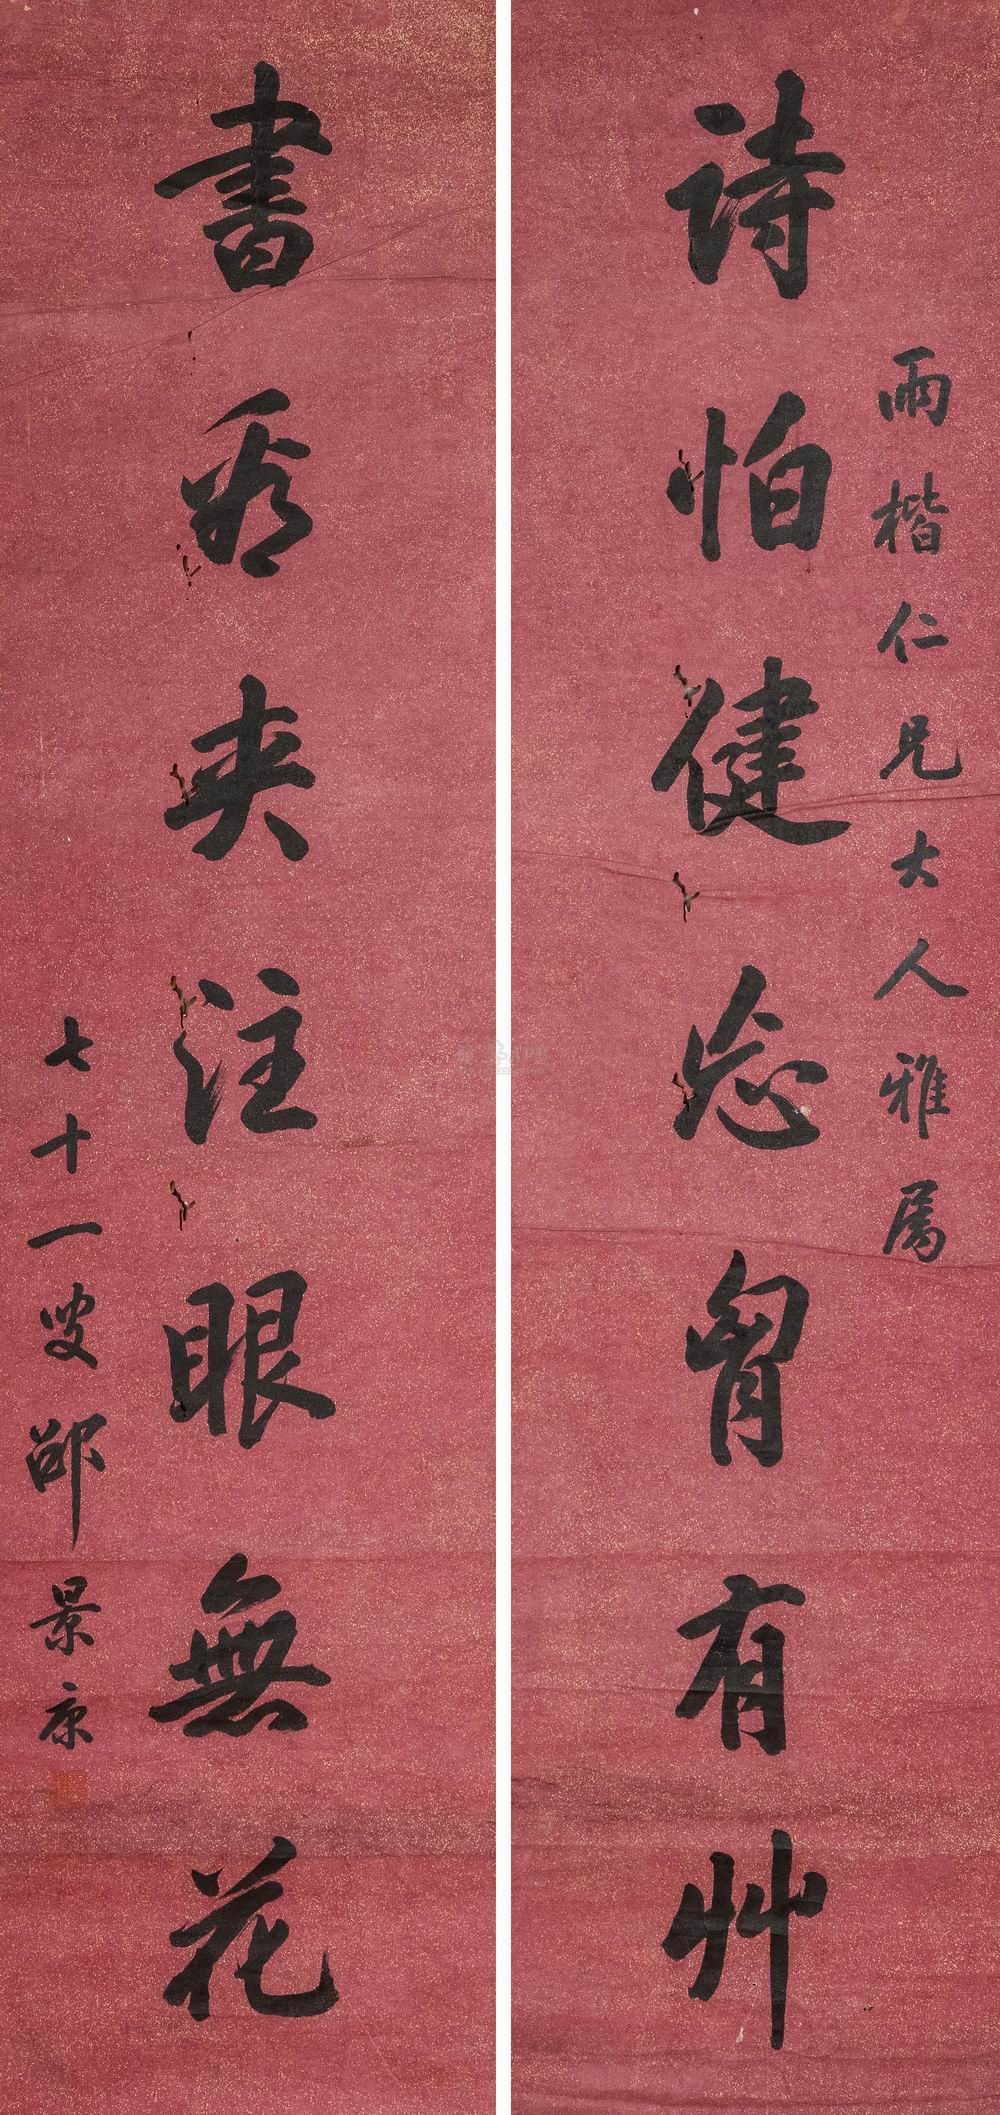 雨楷仁兄大人雅属
詩怕健忘胷有艸
書看夾注眼無花
七十一叟景康